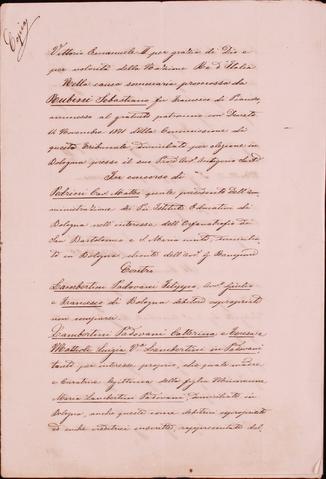 Copia
Vittorio Emanuele II per grazia di Dio e
per volontà della Nazione Re d'Italia
Nella causa sommaria promossa da
Rubini Sebastiano fu Francesco di
ammesso al gratuito patrocinio con Decreto
Novembre 1871 della Commissione di
questo Tribunale, domiciliato per elezione in
Bologna presso il suo Proc.
In concorso di
Pedrini Cav. Matteo quale presidente dell'am
ministrazione dei Pii Istituti Educativi di
Bologna nell'interesse dell'Orfanotrofio di
San Bartolomeo e S. Maria uniti, domicilia
to in Bologna, cliente dell'avv.
Contro
Lambertini Padovani Filippo, Avv. Giulio
e Francesco di Bologna debitori espropriati
non comparsi
Lambertini Padovani Catterina, e
Luigia V.a Lambertini in Padovani
tanto per interesse proprio, che quale madre
e Curatrice legittima della figlia Minorenne
Maria Lambertini Padovani, domiciliate in
Bologna, anche queste come debitrici espropriate
ed anche creditrici inscritte, rappresentate dal